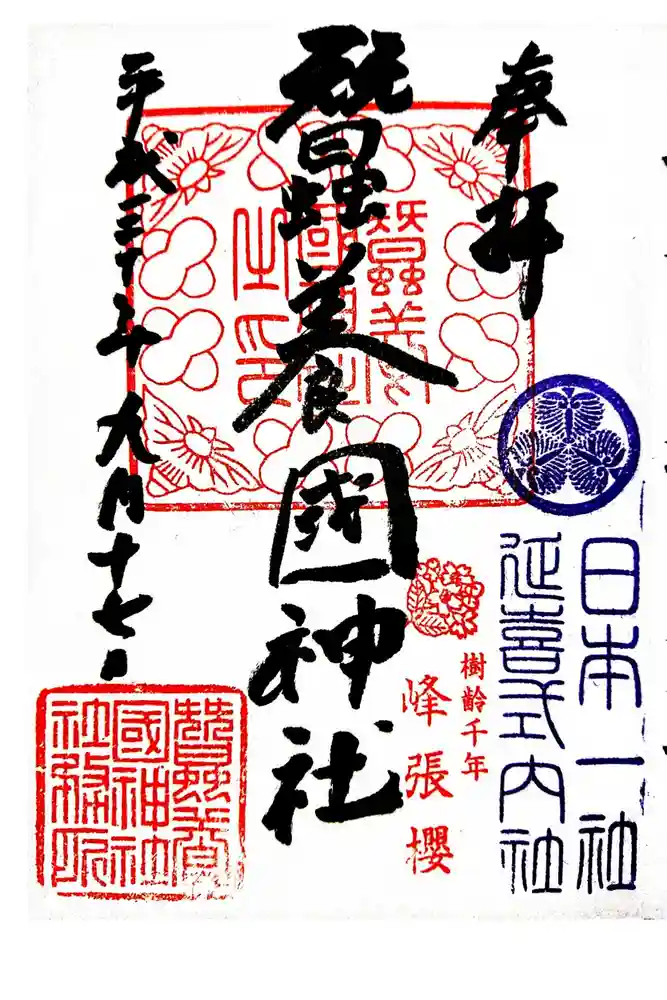 奉拝
日本一社
延喜式内社
樹齢千年
峰張櫻
蠶養國神社
蠶養
國神社
之印
平成三十年九月十七日
蠶養
國神社
社務所